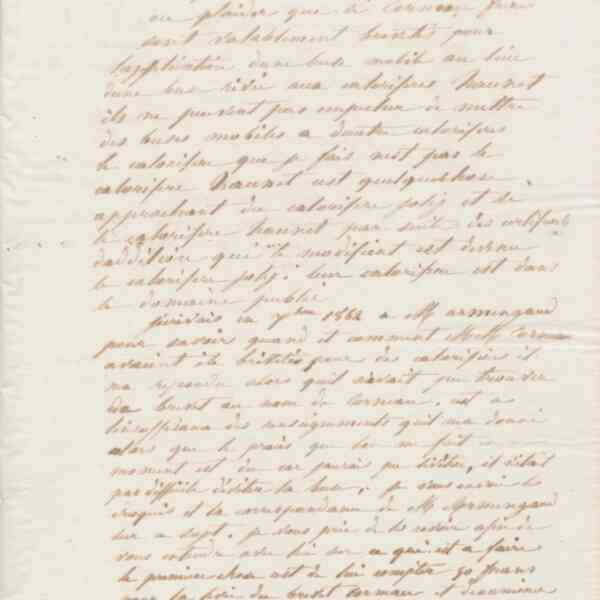 ou plaider que si Corneau frère
sont valablement brevetés pour
l'application d'une buse mobile au lieu
d'une buse rivée aux calorifères haunet
ils ne peuvent pas empecher de mettre
des buses mobiles a d'autre calorifères
le calorifère que je fais n'est pas le
calorifère haunet est quelquechose
approchant du calorifère et si
le calorifère haunet par suite des certificats
d'addition qui le modifient est devenu
le calorifère leur calorifère est dans
le domaine public
J'écrivais en 7bre 1862 a Mr armengaud
pour savoir quand et comment MM Corneau
avaient été brévétés pour des calorifères il
ma repondu alors qu'il n'avait pu trouver
de brevet au nom de Corneau. est a
des renseignements qu'il ma donné
alors que le procès que l'on me fait en ce
moment est du car jaurais pu éviter, il n'était
pas difficile d'éviter la buse. je vous envoi les
croquis et la correspondance de Mr Armengaud
sur a sept. je vous prie de les voir afin de
vous entendre avec lui sur ce qu'il est a faire
la premiere chose est de lui compter 50 francs
pour la copie du brevet Corneau et d'examiner